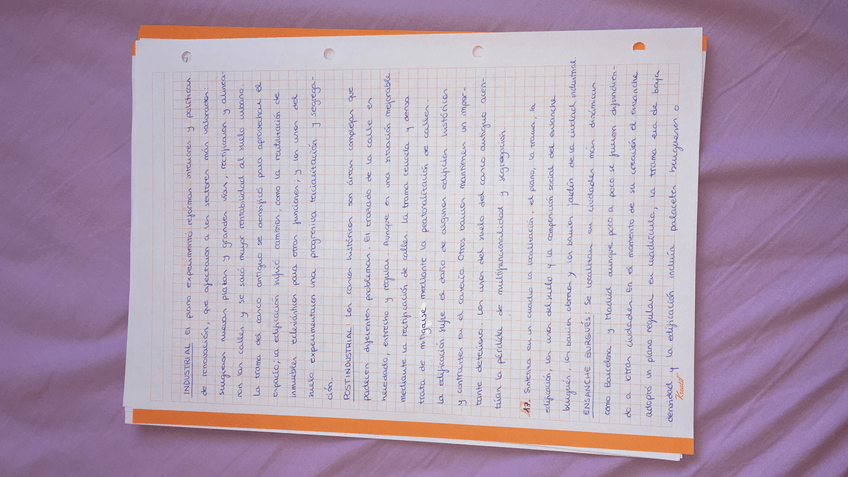 INDUSTRIAL El plano experimentó reformas interiores y políticas
de renovación, que afectaron a los sectores más valorados.
Surgieron nuevas plazas y grandes vías, rectificaron y alinea-
ron las calles y se sacó mayor rentabilidad al suelo urbano.
La trama del casco antiguo se densificó para aprovechar el
espacio; la edificación sufrió cambios, como la reutilización de
inmuebles relevantes para otras funciones; y los usos del
suelo experimentaron una progresiva terciarización y segrega-
ción.
POSTINDUSTRIAL Los cascos históricos son áreas complejas que
padecen diferentes problemas. El trazado de la calle es
heredado, estrecho y regular. Aunque es una situación mejorable
mediante la rectificación de calles. La trama cerrada y densa
trata de mitigarse mediante la peatonalización de calles.
La edificación sufre el daño de algunos edificios históricos
y contrastes en el caserío. Otros barrios mantienen un impor-
tante deterioro. Los usos del suelo del casco antiguo acen-
túan la pérdida de multifuncionalidad y segregación.
17. Sintetiza en un cuadro la localización, el plano, la trama, la
edificación, los usos del suelo y la composición social del ensanche
burgués, los barrios obreros y los barrios jardín de la ciudad industrial
ENSANCHE BURGUÉS: Se localizan en ciudades más dinámicas
como Barcelona y Madrid aunque poco a poco se fueron difundien-
do a otras ciudades. En el momento de su creación el ensanche
adoptó un plano regular en cuadrícula, la trama era de baja
densidad y la edificación incluía palacetes burgueses o